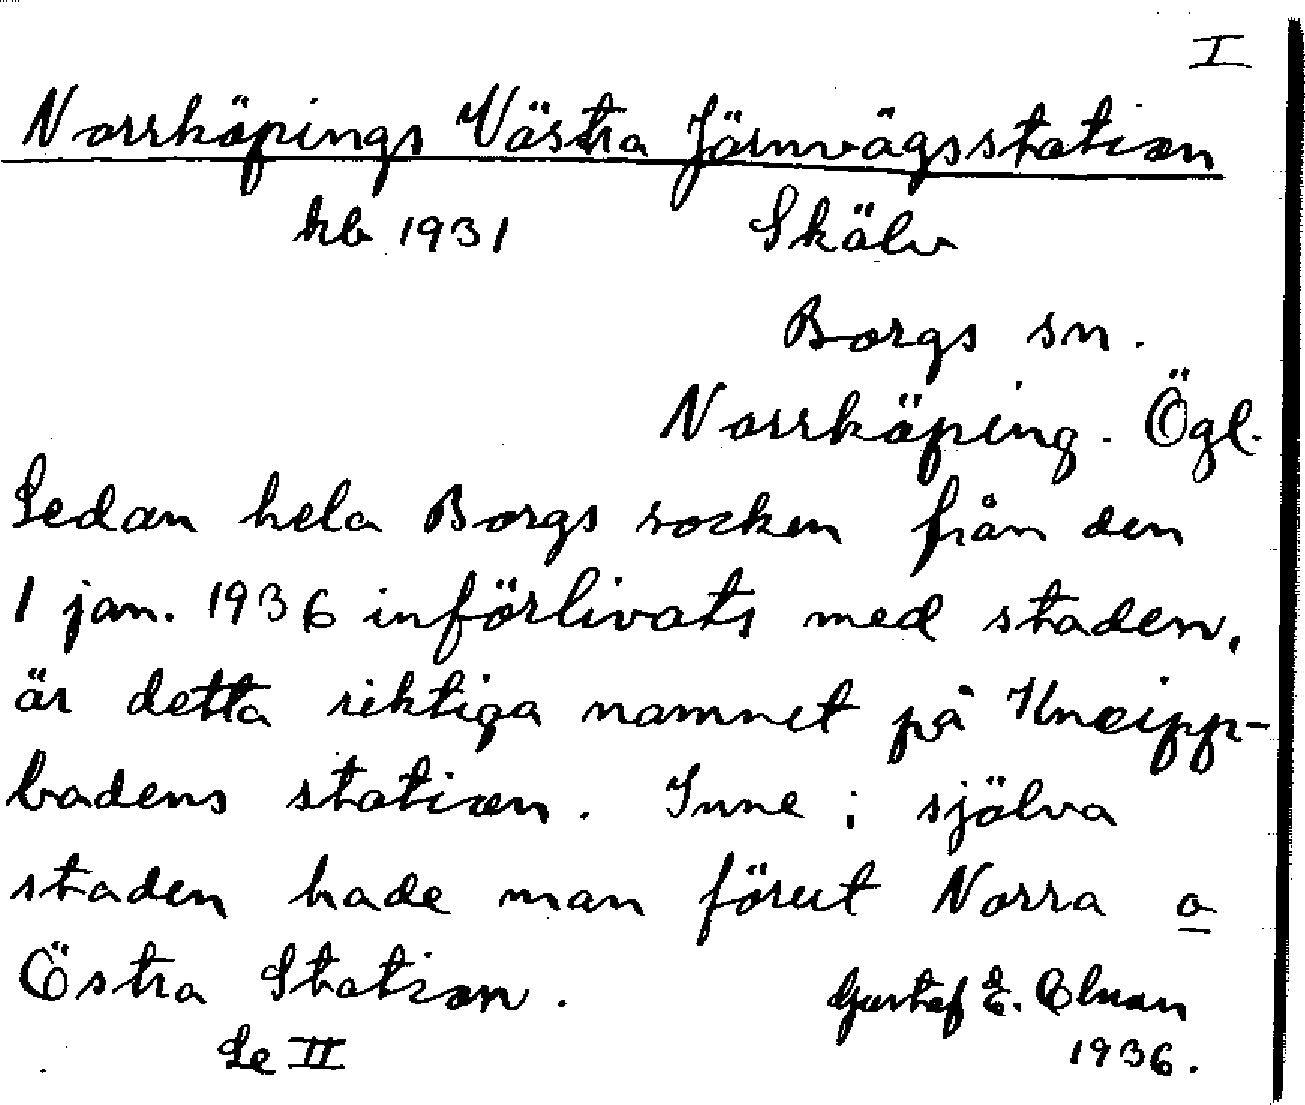 I
Norrköpings Västra Järnvägsstation
hb 1931 Skälv
Borgs sn.
Norrköping. Ögl.
Sedan hela Borgs socken från den
1 jan. 1936 införlivats med staden,
är detta riktiga namnet på Kneipp-
badens station. Inne i själva
staden hade man förut Norra o
Östra Station. Gustaf E.
Se II 1936.